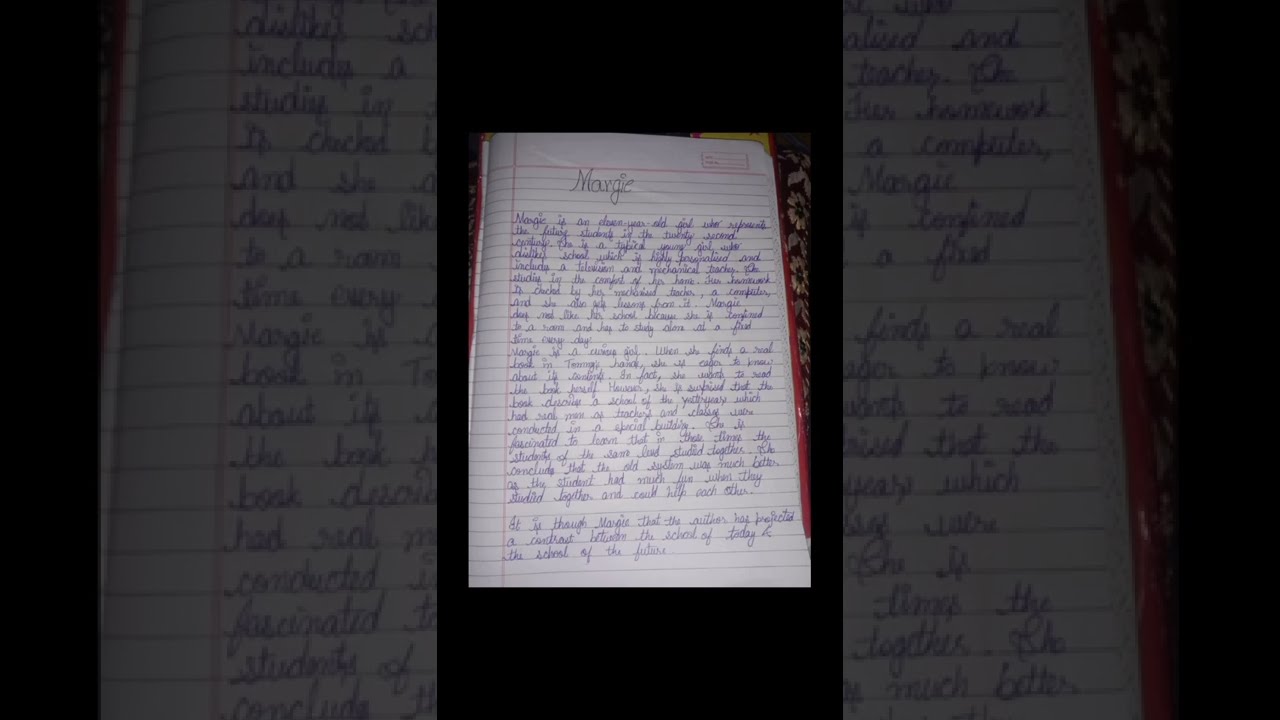 Margie
Margie is an eleven-year-old girl who represents
the future students in the twenty second
century. She is a typical young girl who
dislikes school which is highly personalised and
includes a television and mechanical teacher. She
studies in the comfort of her home. Her homework
is checked by her mechanised teacher, a computer,
and she also gets lessons from it. Margie
does not like her school because she is confined
to a room and has to study alone at a fixed
time every day.
Margie is a curious girl. When she finds a real
book in Tommy's hands, she is eager to know
about its contents. In fact, she wants to read
the book herself. However, she is surprised that the
book describes a school of the yesteryears which
had real men as teachers and classes were
conducted in a special building. She is
fascinated to learn that in those times the
students of the same level studied together. She
conclude that the old system was much better
as the student had much fun when they
studied together and could help each other.
It is though Margie that the author has projected
a contrast between the school of today &
the school of the future.